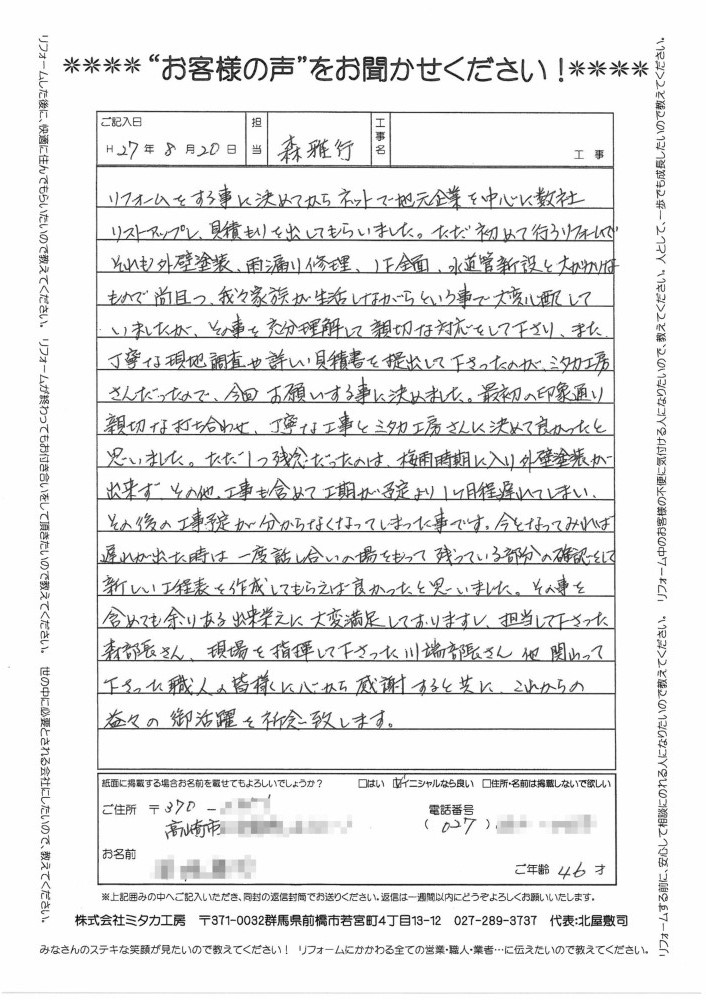 ＊＊＊＊“お客様の声”をお聞かせください！＊＊＊＊
リフォームした後に、快適に住んでもらいたいので教えてください。　リフォームが終わってもお付き合いをして頂きたいので教えてください。　世の中に必要とされる会社にしたいので、教えてください。
ご記入日
H 27 年 8 月 20 日
担当
森雅行
工事名
工事
リフォームをする事に決めてからネットで地元企業を中心に数社
リストアップし、見積もりを出してもらいました。ただ初めて行うリフォームで
それも外壁塗装、雨漏り修理、1F全面、水道管新設と大がかりな
もので尚且つ、我々家族が生活しながらという事で大変心配して
いましたが、その事を充分理解して親切な対応をして下さり、また、
丁寧な現地調査や詳しい見積書を提出して下さったのが、ミタカ工房
さんだったので、今回お願いする事に決めました。最初の印象通り
親切な打ち合わせ、丁寧な工事とミタカ工房さんに決めて良かったと
思いました。ただ1つ残念だったのは、梅雨時期に入り外壁塗装が
出来ず、その他、工事も含めて工期が予定より1ヶ月程遅れてしまい、
その後の工事予定が分からなくなってしまった事です。今となってみれば
遅れが出た時は一度話し合いの場をもって残っている部分の確認をして
新しい工程表を作成してもらえば良かったと思いました。その事を
含めても余りある出来栄えに大変満足しておりますし、担当して下さった
森部長さん、現場を指揮して下さった川端部長さん他関わって
下さった職人の皆様に心から感謝すると共に、これからの
益々の御活躍を祈念致します。
紙面に掲載する場合お名前を載せてもよろしいでしょうか？　□はい　☑イニシャルなら良い　□住所・名前は掲載しないで欲しい
ご住所　〒370 -
高崎市
電話番号
(027)
お名前
ご年齢 46 才
※上記囲みの中へご記入いただき、同封の返信封筒でお送りください。返信は一週間以内にどうぞよろしくお願いいたします。
株式会社ミタカ工房　〒371-0032群馬県前橋市若宮町4丁目13-12　027-289-3737　代表:北屋敷司
みなさんのステキな笑顔が見たいので教えてください！　リフォームにかかわる全ての営業・職人・業者…に伝えたいので教えてください。
リフォームする前に、安心して相談にのれる人になりたいので教えてください。　リフォーム中のお客様の不便に気付ける人になりたいので、教えてください。人として、一歩でも成長したいので教えてください。